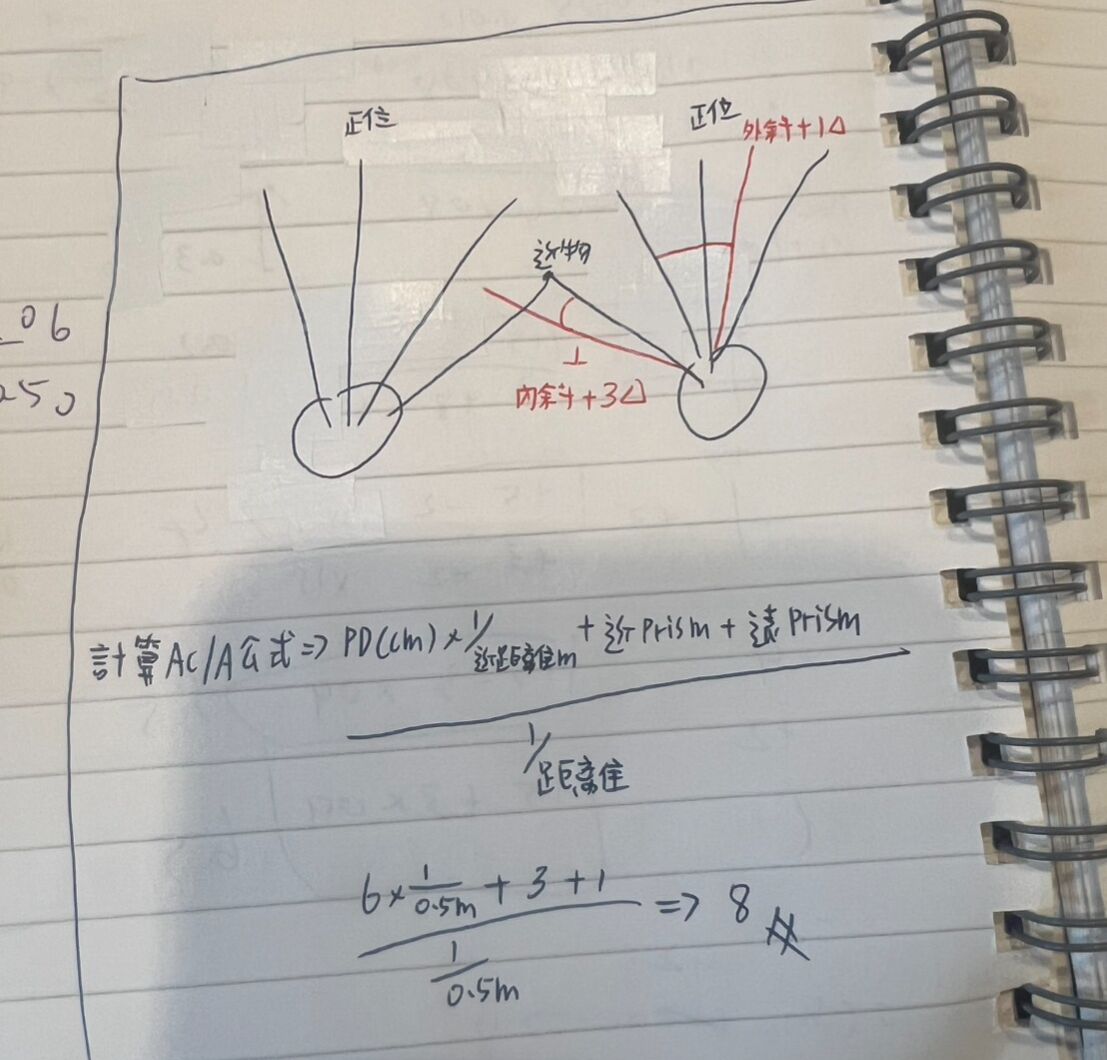 正位
正位
外斜+1△
近物
內斜+3△
06
250
計算AC/A公式=> PD(cm)×1/近距離m + 近Prism + 遠Prism
1/距離
6×1/0.5m + 3 + 1 => 8
1/0.5m